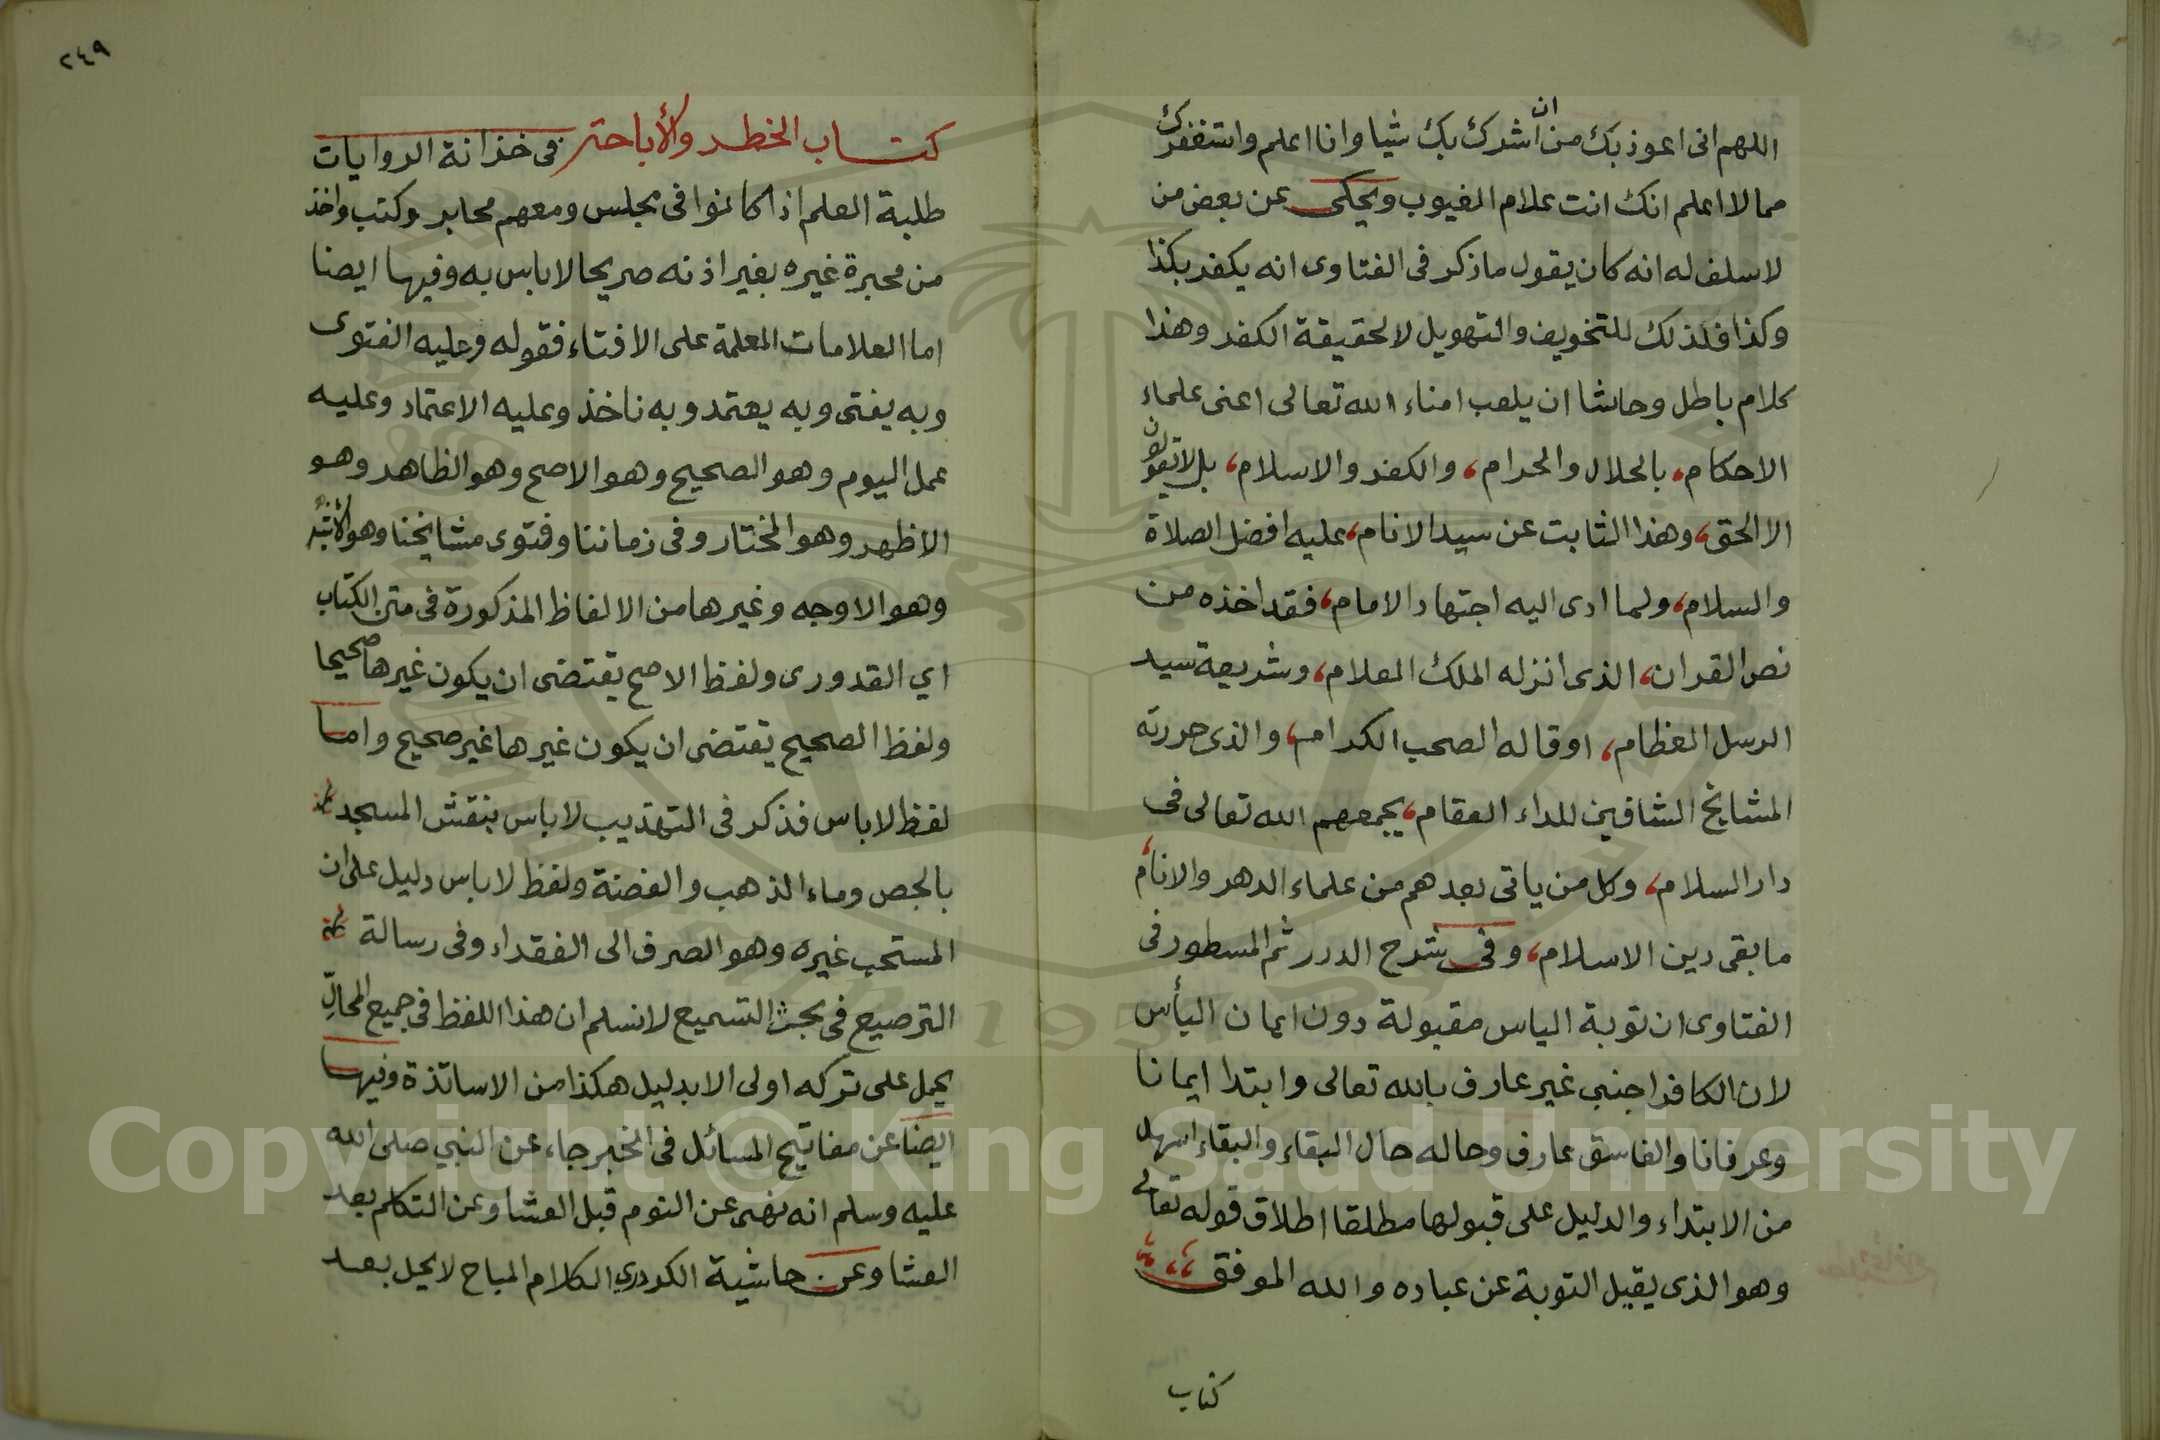 اللهم انى اعوذ بك من ان اشرك بك شيا وانا اعلم واستغفرك
مما لا اعلم انك انت علام الغيوب ويحكى عن بعض من
لا سلف له انه كان يقول ما ذكر فى الفتاوى انه يكفر بكذا
وكذا فلذلك للتخويف والتهويل لا لحقيقة الكفر وهذا
كلام باطل وحاشا ان يلعب امناء الله تعالى اعنى علماء
الاحكام، بالحلال والحرام، والكفر والاسلام، بل لا يقولون
الا الحق، وهذا الثابت عن سيد الانام، عليه افضل الصلاة
والسلام، ولما ادى اليه اجتهاد الامام، فقد اخذه من
نص القران، الذى انزله الملك العلام، وشريعة سيد
الرسل العظام، او قاله الصحب الكرام، والذى حررته
المشايخ الشافين للداء العقام، يجمعهم الله تعالى فى
دار السلام، وكل من ياتى بعدهم من علماء الدهر والانام،
ما بقى دين الاسلام، وفى شرح الدرر ثم المسطور فى
الفتاوى ان توبة الياس مقبولة دون ايمان اليأس
لان الكافر اجنبى غير عارف بالله تعالى وابتدا ايمانا
وعرفانا والفاسق عارف وحاله حال البقاء والبقاء اسهل
من الابتداء والدليل على قبولها مطلقا اطلاق قوله تعالى
وهو الذى يقبل التوبة عن عباده والله الموفق
كتاب
٢٤٩
كتاب الخطر والأباحتر فى خزانة الروايات
طلبة العلم اذا كانوا فى مجلس ومعهم محابر وكتب واخذ
من محبرة غيره بغير اذنه صريحا لاباس به وفيها ايضا
اما العلامات المعلمة على الافتاء فقوله وعليه الفتوى
وبه يفتى وبه يعتمد وبه ناخذ وعليه الاعتماد وعليه
عمل اليوم وهو الصحيح وهو الاصح وهو الظاهر وهو
الاظهر وهو المختار وفى زماننا وفتوى مشايخنا وهو الأشبه
وهو الاوجه وغيرها من الالفاظ المذكورة فى متن الكتاب
اي القدورى ولفظ الاصح يقتضى ان يكون غيرها صحيحا
ولفظ الصحيح يقتضى ان يكون غيرها غير صحيح واما
لفظ لاباس فذكر فى التهذيب لاباس بنقش المسجد
بالجص وماء الذهب والفضة ولفظ لاباس دليل على ان
المستحب غيره وهو الصرف الى الفقراء وفى رسالة
الترصيع فى بحث التسميع لانسلم ان هذا اللفظ فى جميع المحالّ
يحمل على تركه اولى الا بدليل هكذا من الاساتذة وفيها
ايضا عن مفاتيح المسائل فى الخبر جاء عن النبي صلى الله
عليه وسلم انه نهى عن النوم قبل العشا وعن التكلم بعد
العشا وعن حاشية الكودري الكلام المباح لا يحل بعد
Copyright © King Saud University
1957